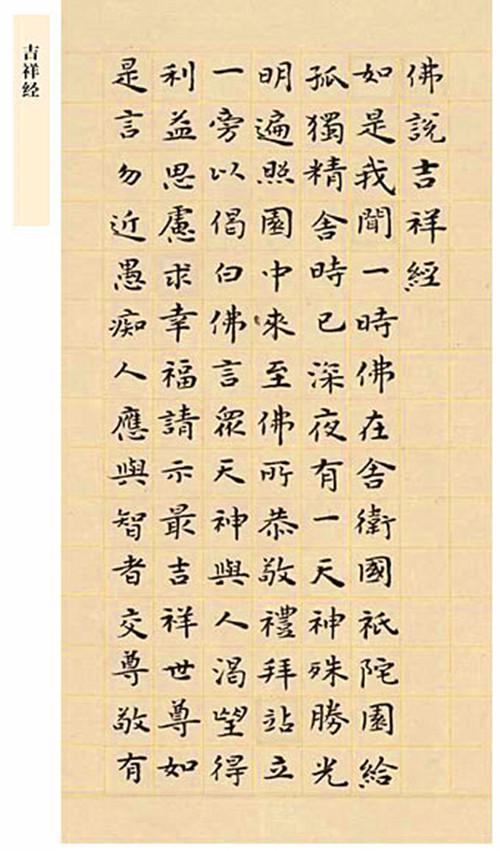 佛說吉祥經
如是我聞一時佛在舍衛國祇陀園給
孤獨精舍時已深夜有一天神殊勝光
明遍照園中來至佛所恭敬禮拜站立
一旁以偈白佛言眾天神與人渴望得
利益思慮求幸福請示最吉祥世尊如
是言勿近愚痴人應與智者交尊敬有
吉祥经